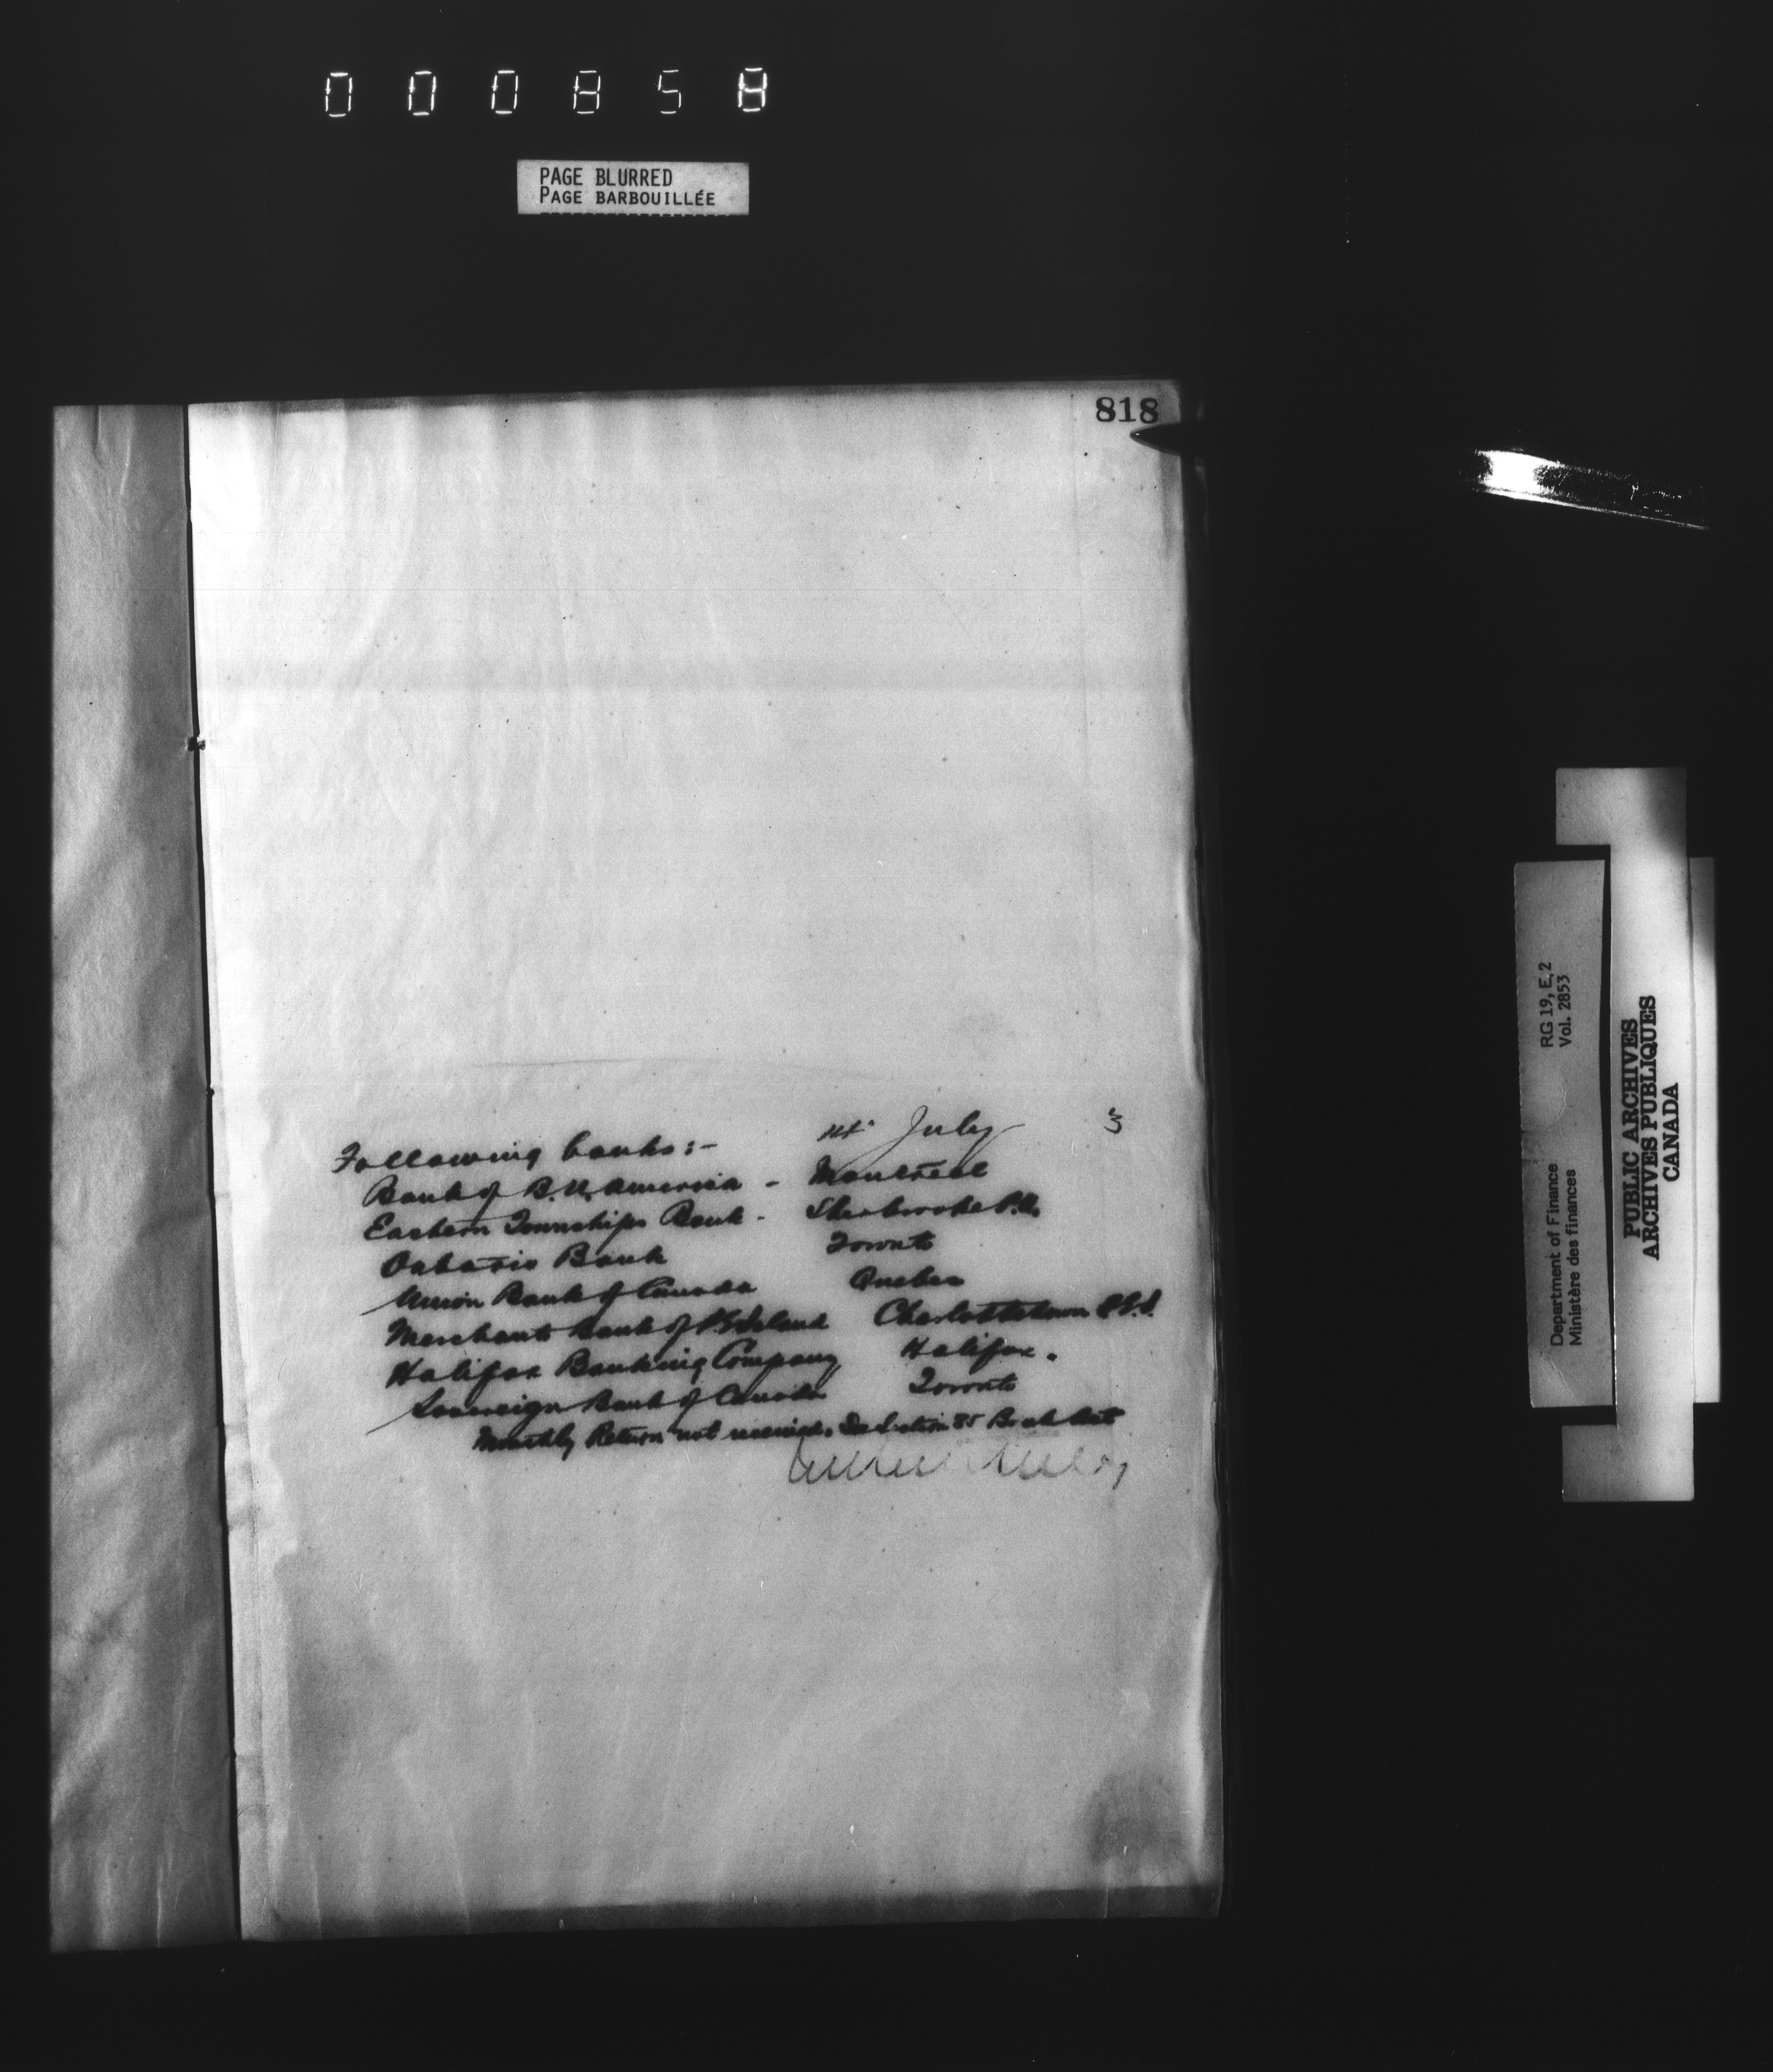 000858
PAGE BLURRED
PAGE BARBOUILLÉE
818
14 July 3
Following banks:-
Bank of B.N. America - Montreal
Eastern Townships Bank - Sherbrooke P.Q.
Ontario Bank Toronto
Union Bank of Canada Quebec
Merchants Bank of P.E. Island Charlottetown P.E.I.
Halifax Banking Company Halifax.
Sovereign Bank of Canada Toronto
Monthly Return not received. See Section 85 Bank Act
Department of Finance RG 19, E, 2
Ministère des finances Vol. 2853
PUBLIC ARCHIVES
ARCHIVES PUBLIQUES
CANADA